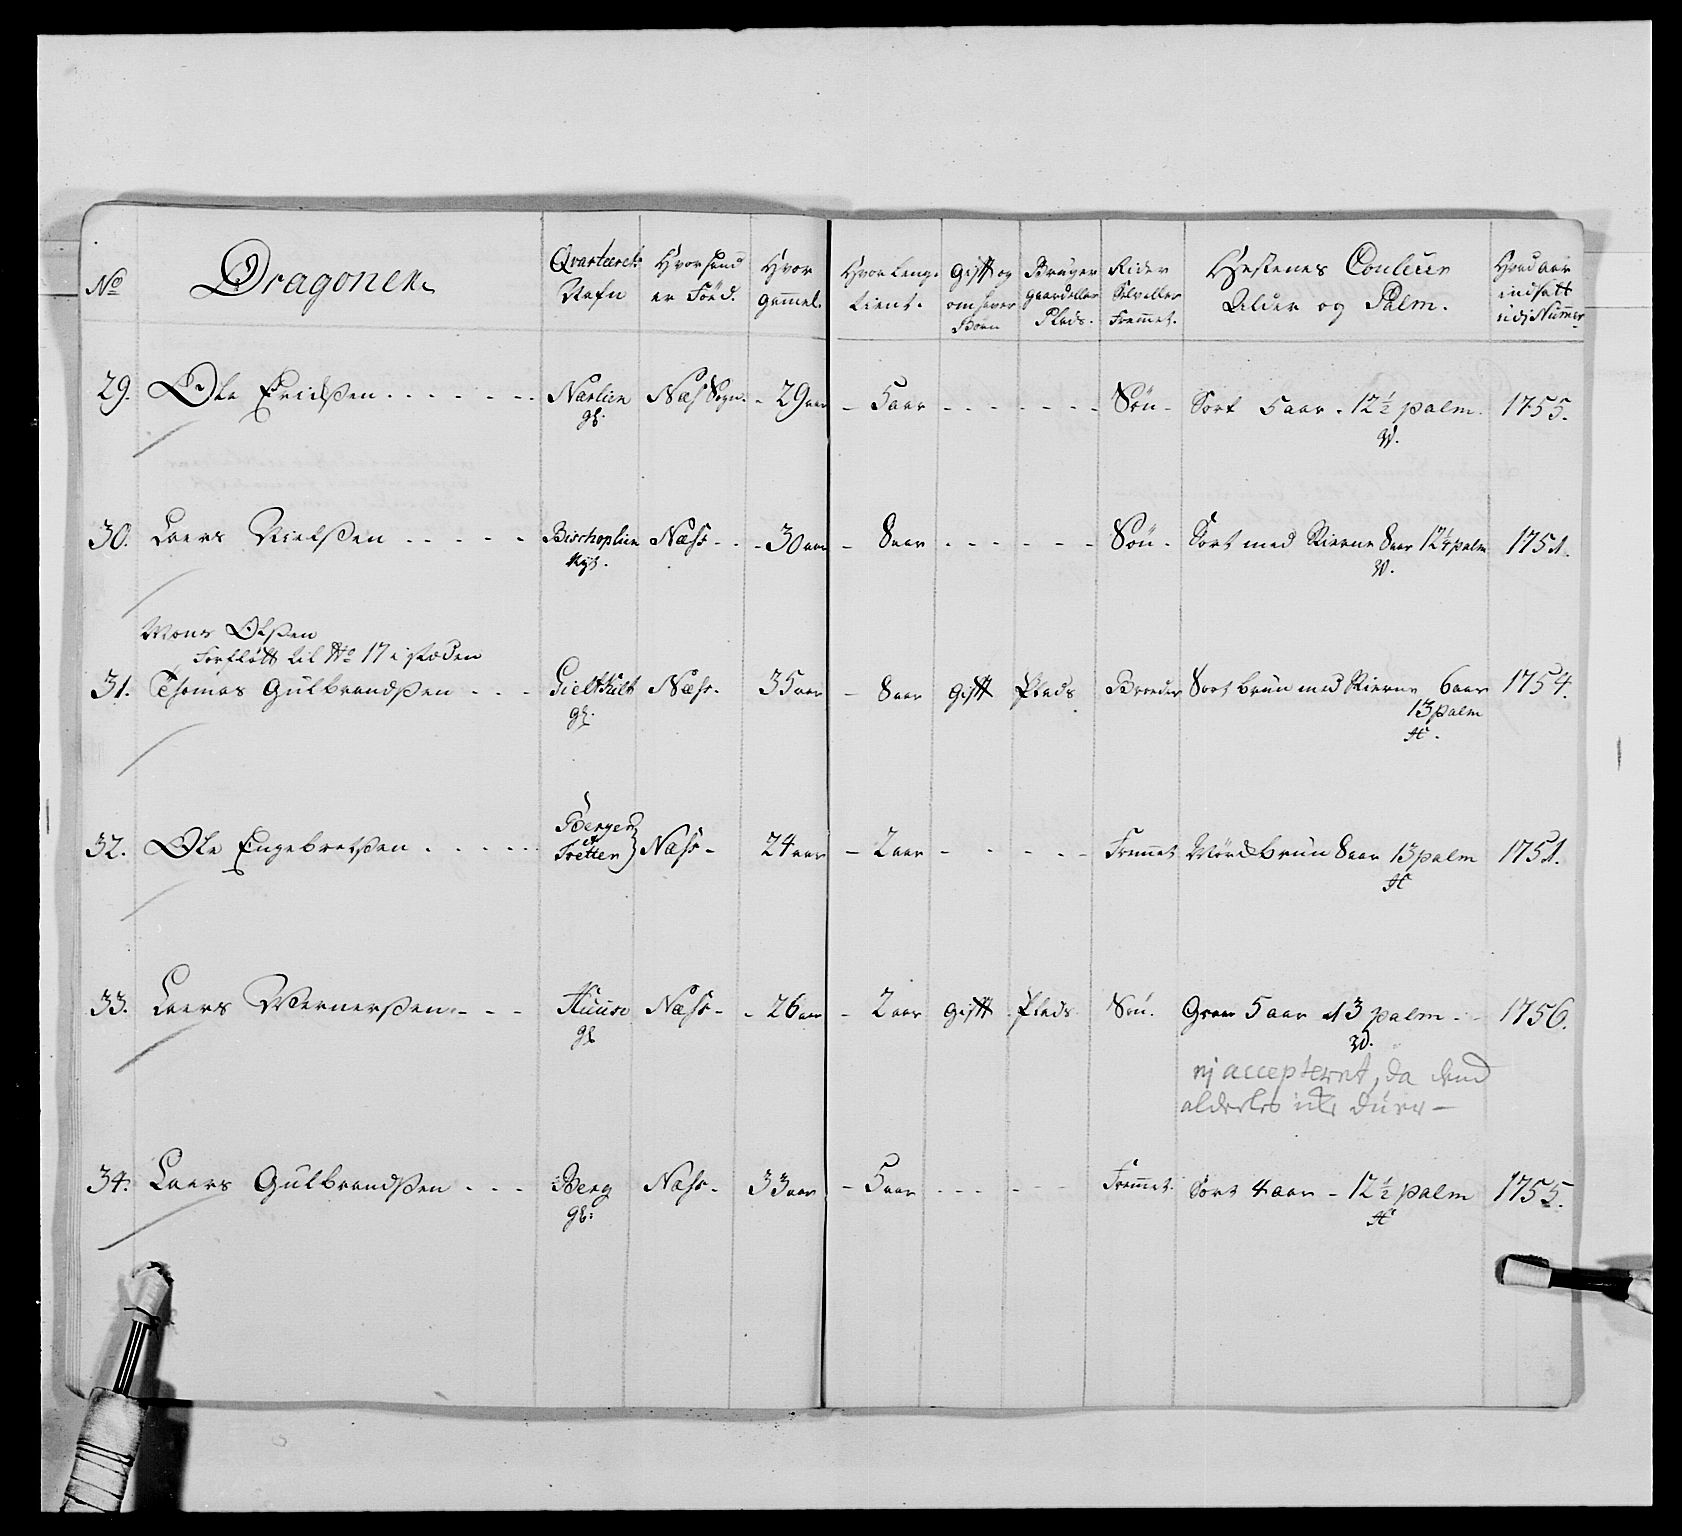 No Dragonen Qvarteerets Nafn Hvor hand er Föed. Hvor gammel. Hvor lenge tient. Gift og om hever Börn Bruger gaard eller Plads. Rider Selv eller Fremmet. Hestenes Couleur Alder og Palm. Hvad aar indsatt udj Nummer
29. Ole Erichsen . . . . . . . Narlien Næs Sogn. - 29 aar - 5 aar - - - - - - - Sön - Sort 5 aar - 12 1/2 palm. 1755.
gl. W.
30. Laers Nielsen . . . . . Bischoplien Næss - - - 30 aar - 8 aar - - - - - - Sön - Sort med Stierne 8 aar 12 1/4 palm 1751.
Nye. W.
Mons Olsen
Forflött til No 17 i stæden
31. Thomas Gulbrandsen - - - Gielthult Næss - 35 aar - 8 aar Gift Plads Broder Sort brun med Stierne 6 aar 1754.
gl. 13 palm
H.
32. Ole Engebretsen . . . . . Bergen et Tretten } Næss - 24 aar - 2 aar - - - - - Fremmet Mörckbrun 8 aar 13 palm 1751.
H
33. Laers Wernersen - - - Huuse Næss - - 26 aar - 2 aar Gift Plads Sön. Graa 5 aar 13 palm - - 1756.
gl W.
ej accepteret, da dend
aldeeles icke duer -
34. Laers Gulbrandsen - - - Berg Næss - 33 aar - 5 aar - - - - - - Fremmet. Sort 4 aar - 12 1/2 palm 1755.
gl: H